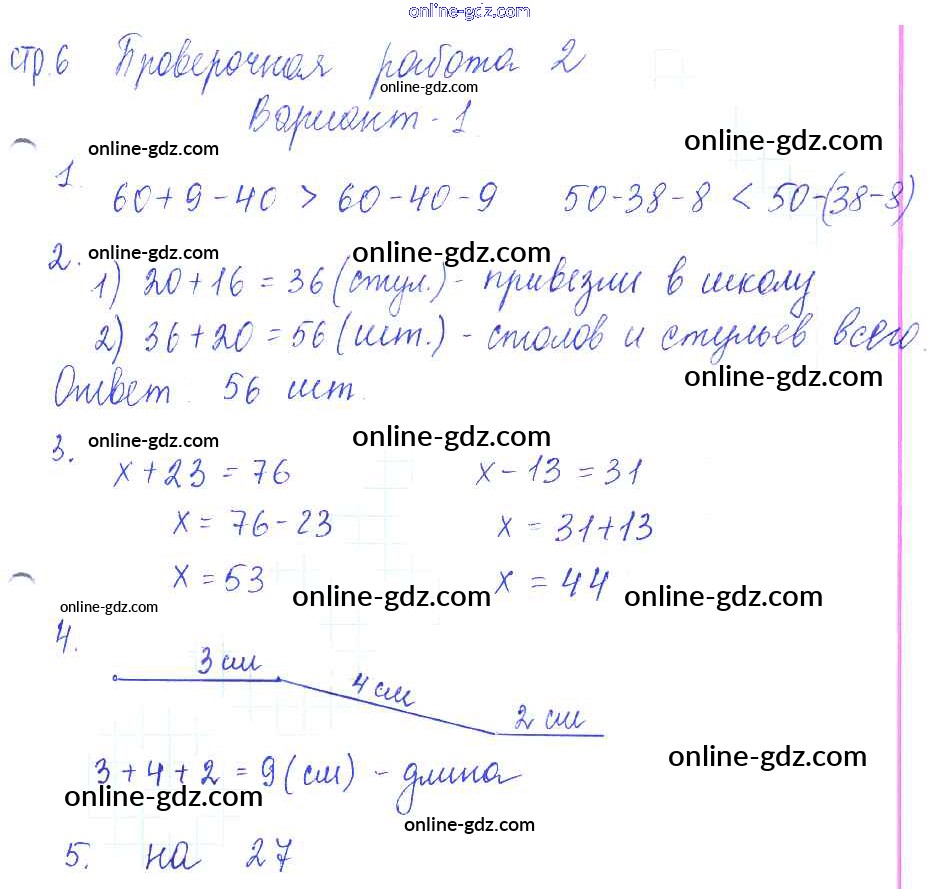 online-gdz.com
стр.6 Проверочная работа 2
online-gdz.com
Вариант-1
online-gdz.com online-gdz.com
1.
60+9-40 > 60-40-9 50-38-8 < 50-(38-8)
online-gdz.com online-gdz.com online-gdz.com
2.
1) 20+16=36 (стул.)- привезли в школу
2) 36+20=56 (шт.)- столов и стульев всего.
online-gdz.com
Ответ. 56 шт.
online-gdz.com online-gdz.com
3.
x+23=76 x-13=31
x=76-23 x=31+13
x=53 x=44
online-gdz.com online-gdz.com
online-gdz.com
4.
3 см
4 см
2 см
online-gdz.com
3+4+2=9(см) - длина
online-gdz.com
online-gdz.com
5. на 27